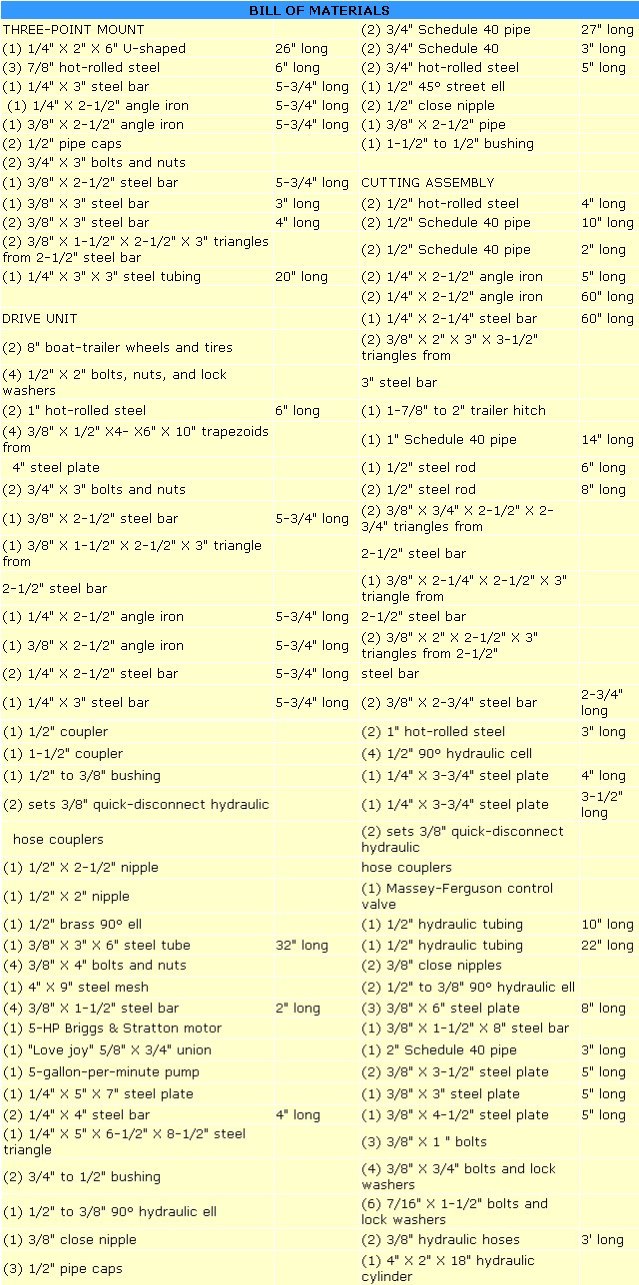 BILL OF MATERIALS
THREE-POINT MOUNT
(1) 1/4" X 2" X 6" U-shaped 26" long
(3) 7/8" hot-rolled steel 6" long
(1) 1/4" X 3" steel bar 5-3/4" long
(1) 1/4" X 2-1/2" angle iron 5-3/4" long
(1) 3/8" X 2-1/2" angle iron 5-3/4" long
(2) 1/2" pipe caps
(2) 3/4" X 3" bolts and nuts
(1) 3/8" X 2-1/2" steel bar 5-3/4" long
(1) 3/8" X 3" steel bar 3" long
(2) 3/8" X 3" steel bar 4" long
(2) 3/8" X 1-1/2" X 2-1/2" X 3" triangles
from 2-1/2" steel bar
(1) 1/4" X 3" X 3" steel tubing 20" long
DRIVE UNIT
(2) 8" boat-trailer wheels and tires
(4) 1/2" X 2" bolts, nuts, and lock
washers
(2) 1" hot-rolled steel 6" long
(4) 3/8" X 1/2" X4- X6" X 10" trapezoids
from
4" steel plate
(2) 3/4" X 3" bolts and nuts
(1) 3/8" X 2-1/2" steel bar 5-3/4" long
(1) 3/8" X 1-1/2" X 2-1/2" X 3" triangle
from
2-1/2" steel bar
(1) 1/4" X 2-1/2" angle iron 5-3/4" long
(1) 3/8" X 2-1/2" angle iron 5-3/4" long
(2) 1/4" X 2-1/2" steel bar 5-3/4" long
(1) 1/4" X 3" steel bar 5-3/4" long
(1) 1/2" coupler
(1) 1-1/2" coupler
(1) 1/2" to 3/8" bushing
(2) sets 3/8" quick-disconnect hydraulic
hose couplers
(1) 1/2" X 2-1/2" nipple
(1) 1/2" X 2" nipple
(1) 1/2" brass 90º ell
(1) 3/8" X 3" X 6" steel tube 32" long
(4) 3/8" X 4" bolts and nuts
(1) 4" X 9" steel mesh
(4) 3/8" X 1-1/2" steel bar 2" long
(1) 5-HP Briggs & Stratton motor
(1) "Love joy" 5/8" X 3/4" union
(1) 5-gallon-per-minute pump
(1) 1/4" X 5" X 7" steel plate
(2) 1/4" X 4" steel bar 4" long
(1) 1/4" X 5" X 6-1/2" X 8-1/2" steel
triangle
(2) 3/4" to 1/2" bushing
(1) 1/2" to 3/8" 90º hydraulic ell
(1) 3/8" close nipple
(3) 1/2" pipe caps
(2) 3/4" Schedule 40 pipe 27" long
(2) 3/4" Schedule 40 3" long
(2) 3/4" hot-rolled steel 5" long
(1) 1/2" 45º street ell
(2) 1/2" close nipple
(1) 3/8" X 2-1/2" pipe
(1) 1-1/2" to 1/2" bushing
CUTTING ASSEMBLY
(2) 1/2" hot-rolled steel 4" long
(2) 1/2" Schedule 40 pipe 10" long
(2) 1/2" Schedule 40 pipe 2" long
(2) 1/4" X 2-1/2" angle iron 5" long
(2) 1/4" X 2-1/2" angle iron 60" long
(1) 1/4" X 2-1/4" steel bar 60" long
(2) 3/8" X 2" X 3" X 3-1/2"
triangles from
3" steel bar
(1) 1-7/8" to 2" trailer hitch
(1) 1" Schedule 40 pipe 14" long
(1) 1/2" steel rod 6" long
(2) 1/2" steel rod 8" long
(2) 3/8" X 3/4" X 2-1/2" X 2-
3/4" triangles from
2-1/2" steel bar
(1) 3/8" X 2-1/4" X 2-1/2" X 3"
triangle from
2-1/2" steel bar
(2) 3/8" X 2" X 2-1/2" X 3"
triangles from 2-1/2"
steel bar
(2) 3/8" X 2-3/4" steel bar 2-3/4"
long
(2) 1" hot-rolled steel 3" long
(4) 1/2" 90º hydraulic cell
(1) 1/4" X 3-3/4" steel plate 4" long
(1) 1/4" X 3-3/4" steel plate 3-1/2"
long
(2) sets 3/8" quick-disconnect
hydraulic
hose couplers
(1) Massey-Ferguson control
valve
(1) 1/2" hydraulic tubing 10" long
(1) 1/2" hydraulic tubing 22" long
(2) 3/8" close nipples
(2) 1/2" to 3/8" 90º hydraulic ell
(3) 3/8" X 6" steel plate 8" long
(1) 3/8" X 1-1/2" X 8" steel bar
(1) 2" Schedule 40 pipe 3" long
(2) 3/8" X 3-1/2" steel plate 5" long
(1) 3/8" X 3" steel plate 5" long
(1) 3/8" X 4-1/2" steel plate 5" long
(3) 3/8" X 1 " bolts
(4) 3/8" X 3/4" bolts and lock
washers
(6) 7/16" X 1-1/2" bolts and
lock washers
(2) 3/8" hydraulic hoses 3' long
(1) 4" X 2" X 18" hydraulic
cylinder